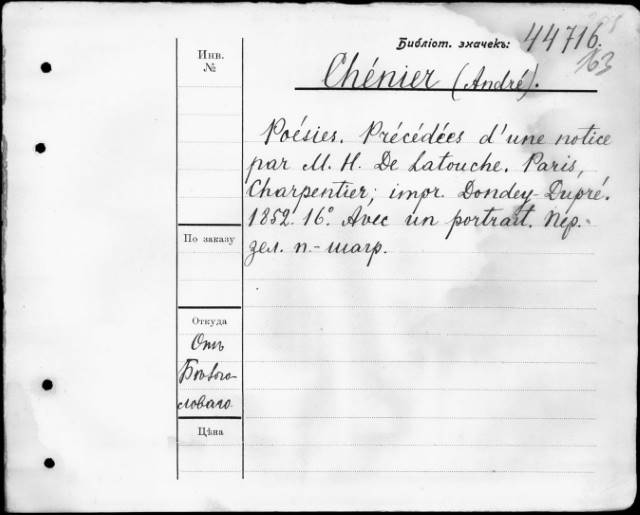 Библіот. значекъ: 44716.
163
Инв.
№
Chénier (André).
Poésies. Précédées d'une notice
par M. H. De Latouche. Paris,
Charpentier; impr. Dondey-Dupré.
1852. 16°. Avec un portrait. Пер.-
зел. п.-шагр.
По заказу
Откуда
Отъ
Цѣна